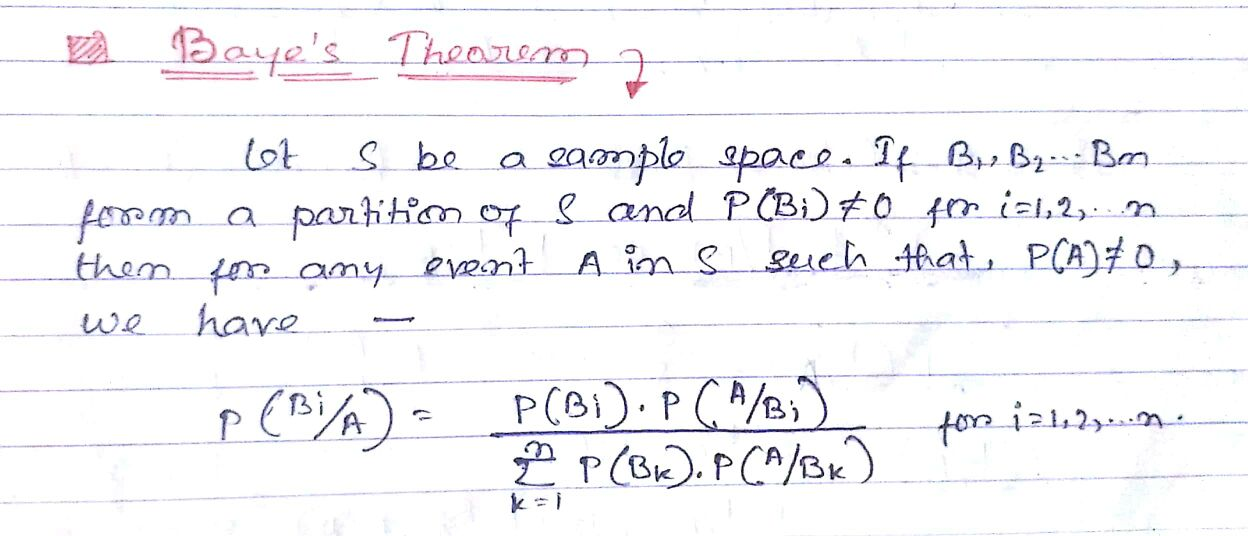 Baye's Thearem
Let S be a sample space. If B₁, B₂...Bn
form a partition of S and P(Bi) ≠ 0 for i=1,2,...n
then for any event A in S such that, P(A) ≠ 0,
we have —
P(Bi/A) = P(Bi).P(A/Bi) / ∑ₖ₌₁ⁿ P(Bk).P(A/Bk) for i=1,2,...n.